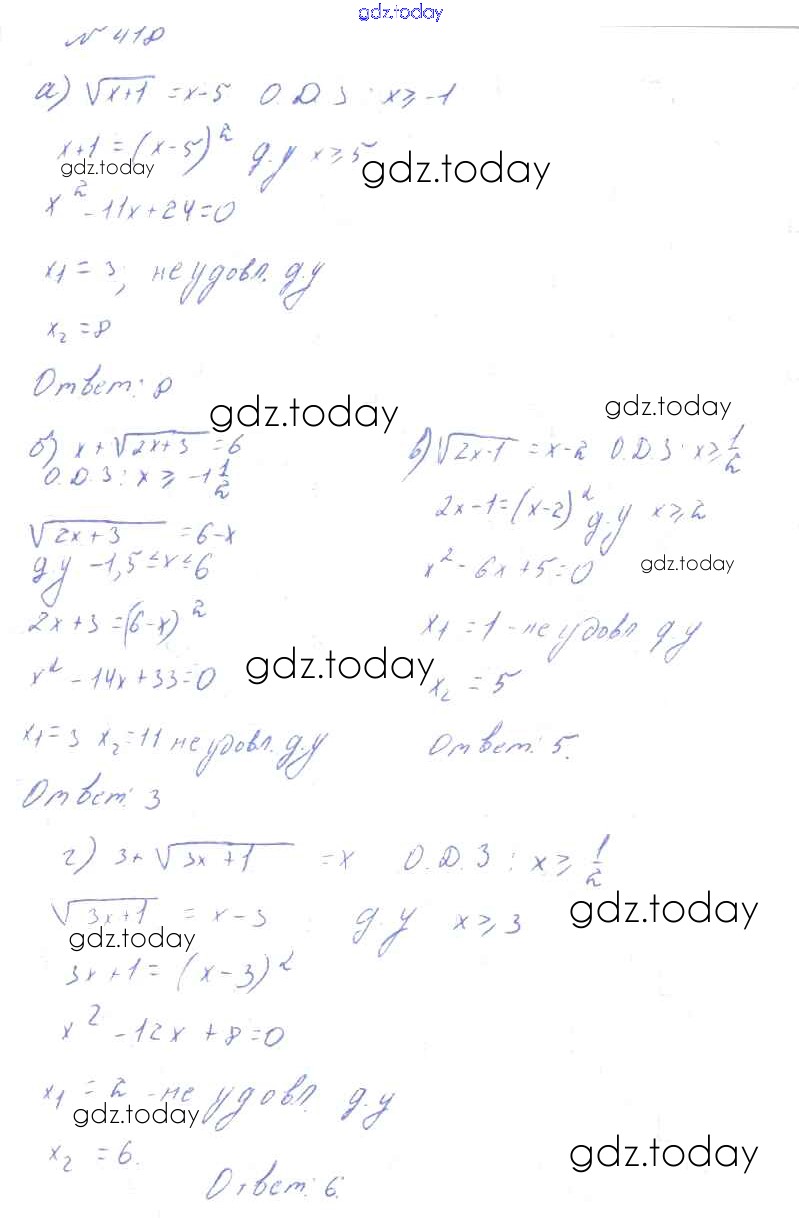 gdz.today
№ 418
а) √(x+1) = x-5 О.D.З: x ≥ -1
x+1 = (x-5)² д.у x ≥ 5
gdz.today gdz.today
x² - 11x + 24 = 0
x₁ = 3; не удовл. д.у
x₂ = 8
Ответ: 8
gdz.today gdz.today
б) x + √(2x+3) = 6
О.D.З: x ≥ -1 1/2
√(2x+3) = 6-x
д.у -1,5 ≤ x ≤ 6
2x+3 = (6-x)²
x² - 14x + 33 = 0
gdz.today
x₁ = 3 x₂ = 11 не удовл. д.у
Ответ: 3
в) √(2x-1) = x-2 О.D.З: x ≥ 1/2
2x-1 = (x-2)² д.у x ≥ 2
x² - 6x + 5 = 0
gdz.today
x₁ = 1 - не удовл д.у
x₂ = 5
Ответ: 5.
г) 3+√(3x+1) = x О.D.З: x ≥ 1/2
√(3x+1) = x-3 д.у x ≥ 3
gdz.today gdz.today
3x+1 = (x-3)²
x² - 12x + 8 = 0
x₁ = 2 - не удовл. д.у
gdz.today
x₂ = 6.
gdz.today
Ответ: 6.